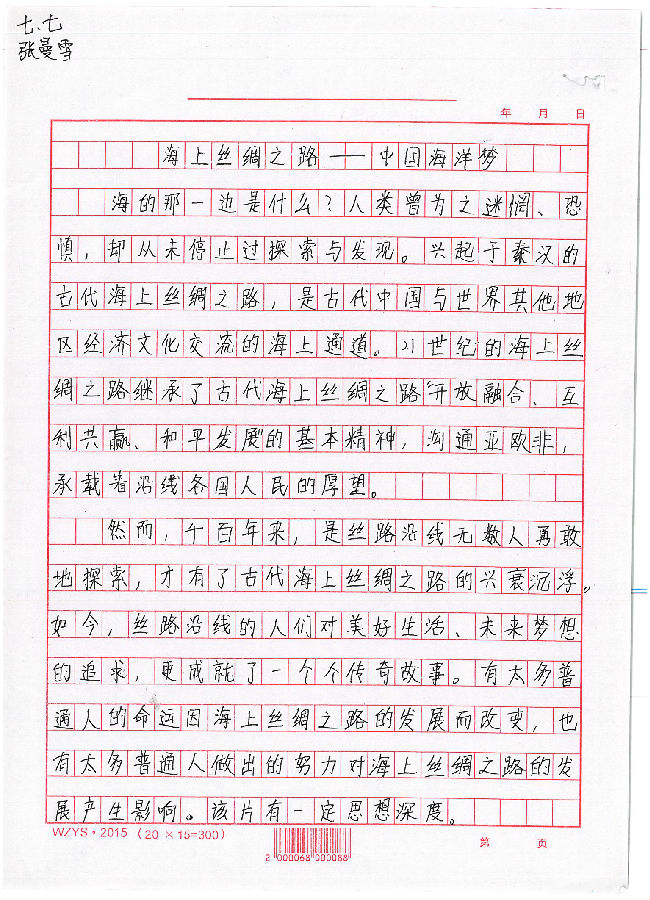 七、七
张曼雪
年 月 日
海上丝绸之路——中国海洋梦
海的那一边是什么？人类曾为之迷惘、恐
惧，却从未停止过探索与发现。兴起于秦汉的
古代海上丝绸之路，是古代中国与世界其他地
区经济文化交流的海上通道。21世纪的海上丝
绸之路继承了古代海上丝绸之路“开放融合、互
利共赢、和平发展”的基本精神，沟通亚欧非，
承载着沿线各国人民的厚望。
然而，千百年来，是丝路沿线无数人勇敢
地探索，才有了古代海上丝绸之路的兴衰沉浮。
如今，丝路沿线的人们对美好生活、未来梦想
的追求，更成就了一个个传奇故事。有太多普
通人的命运因海上丝绸之路的发展而改变，也
有太多普通人做出的努力对海上丝绸之路的发
展产生影响。该片有一定思想深度。
WZYS·2015（20×15=300）
2 000068 000088
第 页